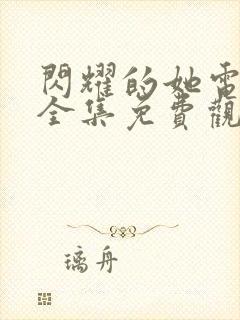 閃耀的她電
全集免費觀
璃舟